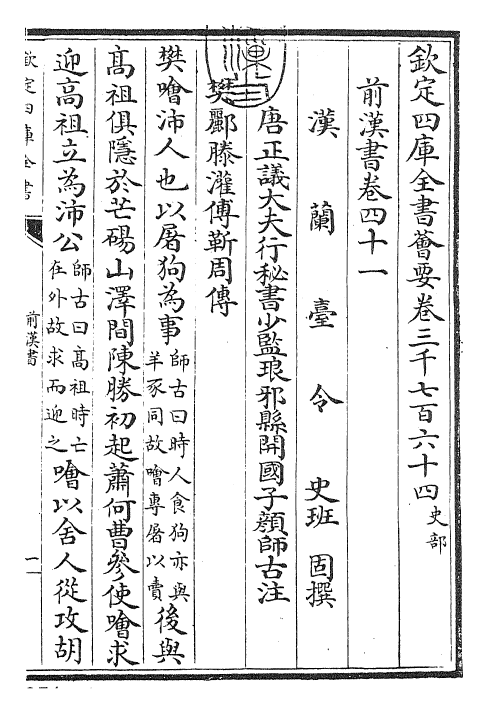 欽定四庫全書薈要卷三千七百六十四史部
前漢書卷四十一
漢蘭臺令史班固撰
唐正議大夫行秘書少監琅邪縣開國子顏師古注
樊酈滕灌傅靳周傳
樊噲沛人也以屠狗為事師古曰時人食狗亦與羊豕同故噲專屠以賣後與
高祖俱隱於芒碭山澤間陳勝初起蕭何曹參使噲求
迎高祖立為沛公師古曰高祖時亡在外故求而迎之噲以舍人從攻胡
欽定四庫全書
前漢書
一